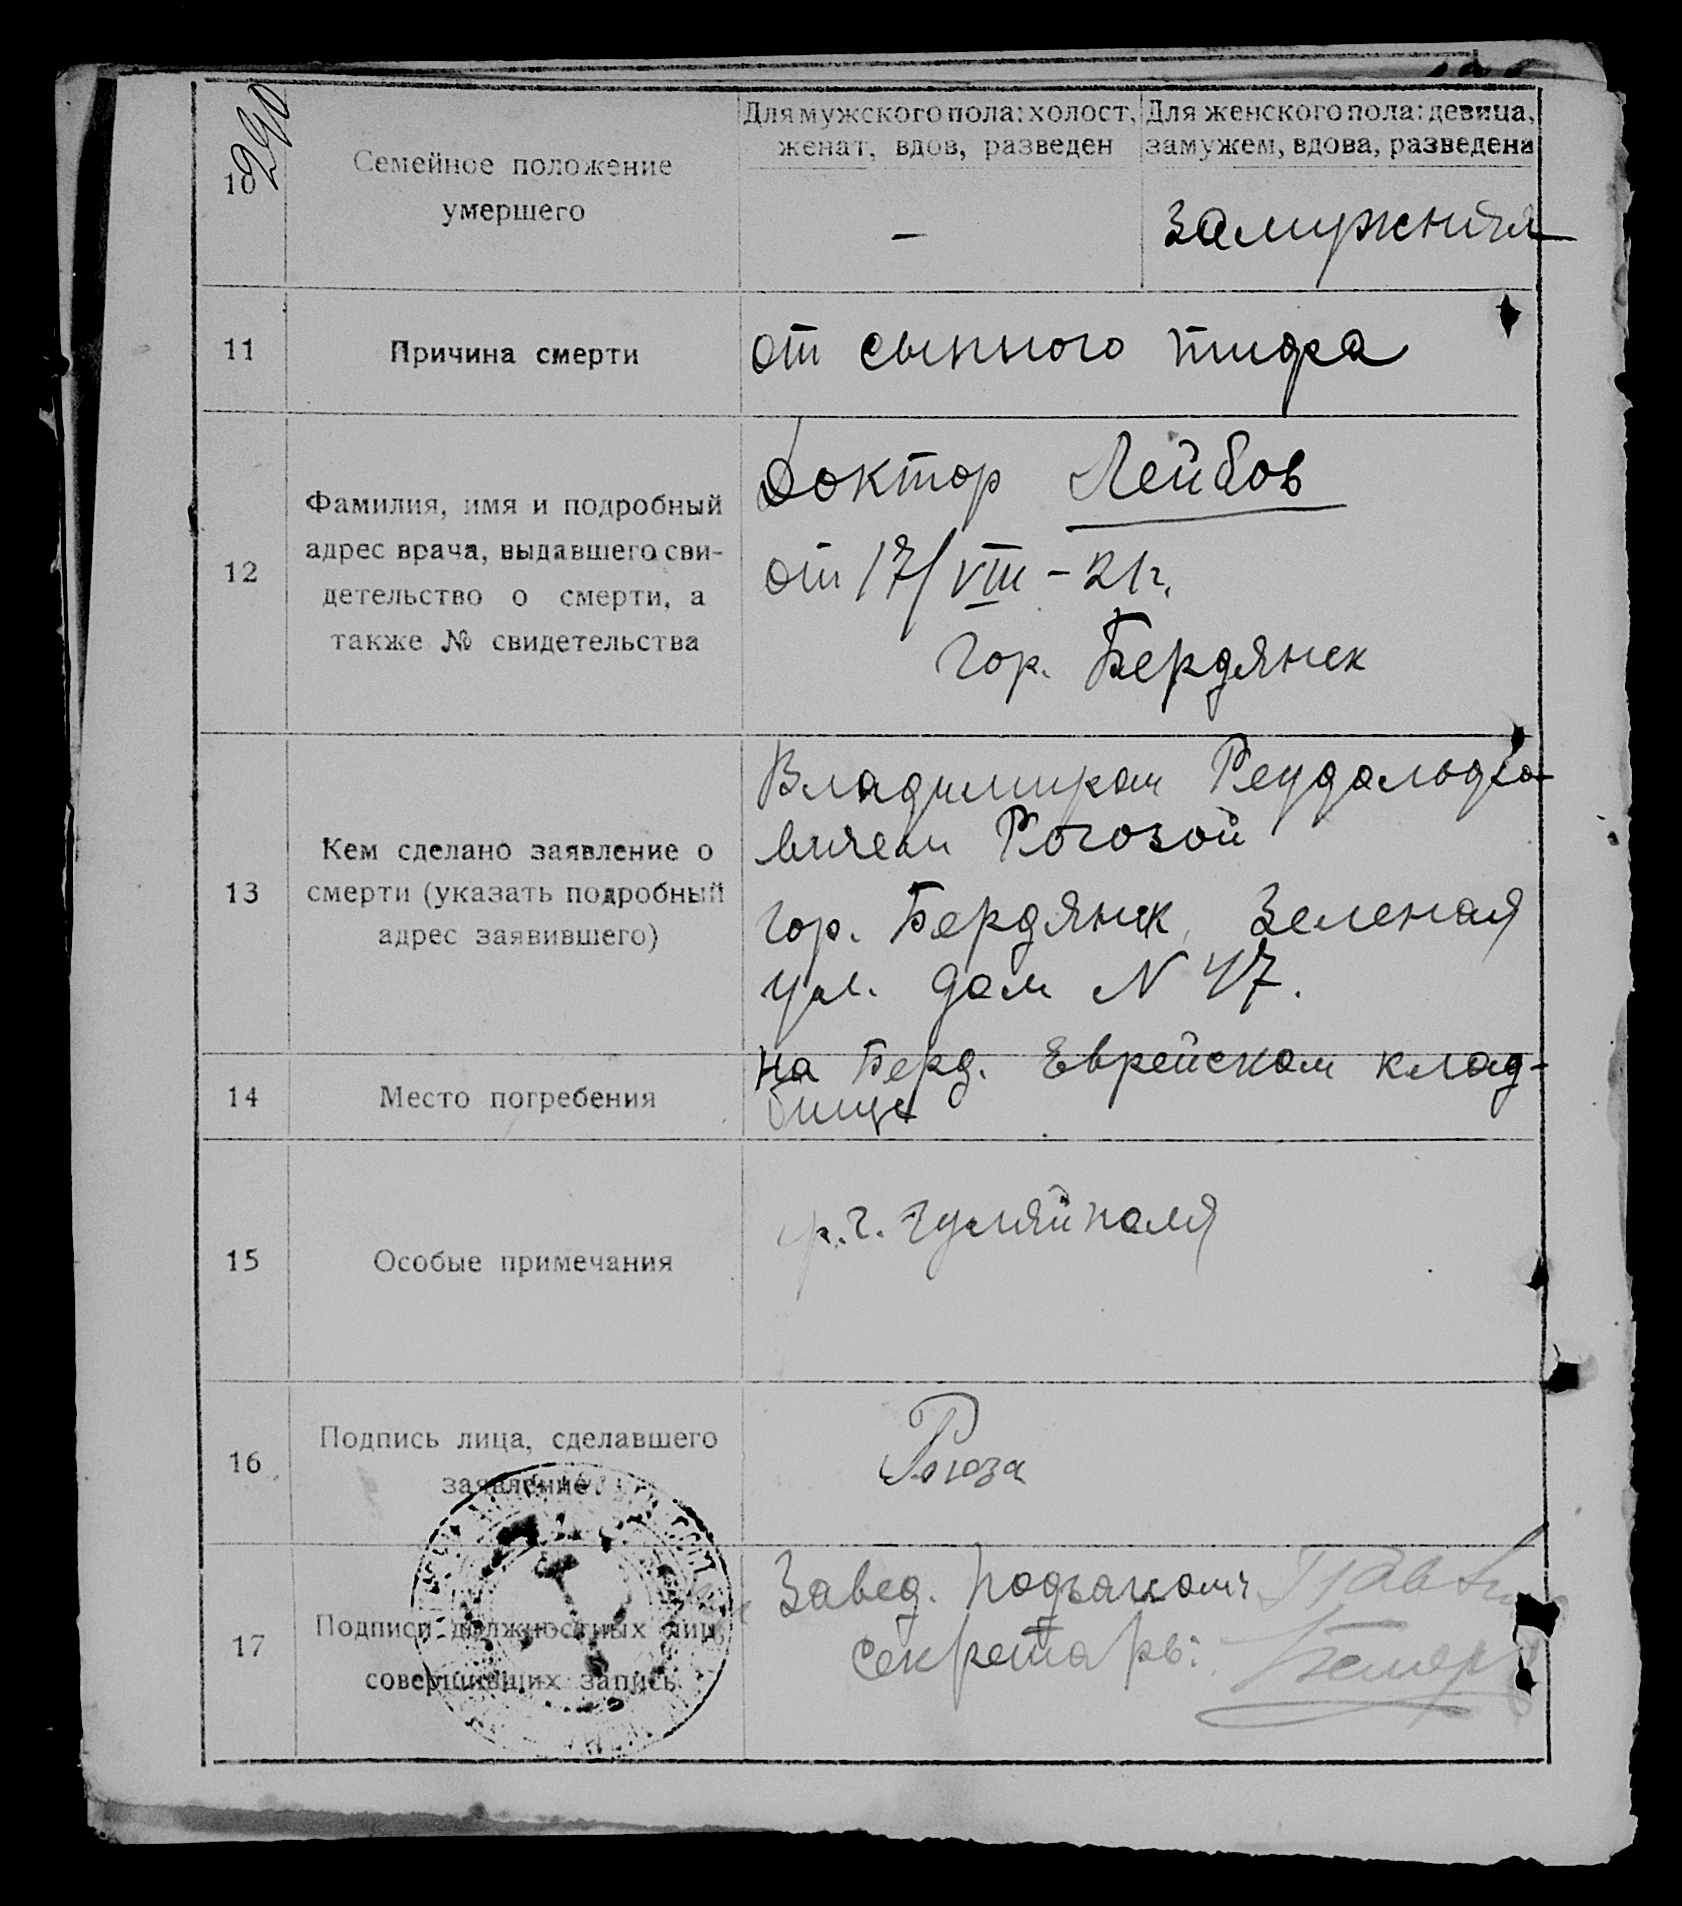 290
Для мужского пола: холост,
женат, вдов, разведен
Для женского пола: девица,
замужем, вдова, разведена
10
Семейное положение
умершего
–
замужняя
11
Причина смерти
от сыпного тифа
12
Фамилия, имя и подробный
адрес врача, выдавшего сви-
детельство о смерти, а
также № свидетельства
Доктор Лейбов
от 17/VIII – 21г.
гор. Бердянск
13
Кем сделано заявление о
смерти (указать подробный
адрес заявившего)
Владимиром
вичем Рогозой
гор. Бердянск, Зеленая
ул. дом N 47.
14
Место погребения
на Берд. Еврейском клад-
бище
15
Особые примечания
гр. г. Гуляйполя
16
Подпись лица, сделавшего
заявление
Рогоза
17
Подписи должностных лиц,
совершивших запись
Завед.
Секретарь: